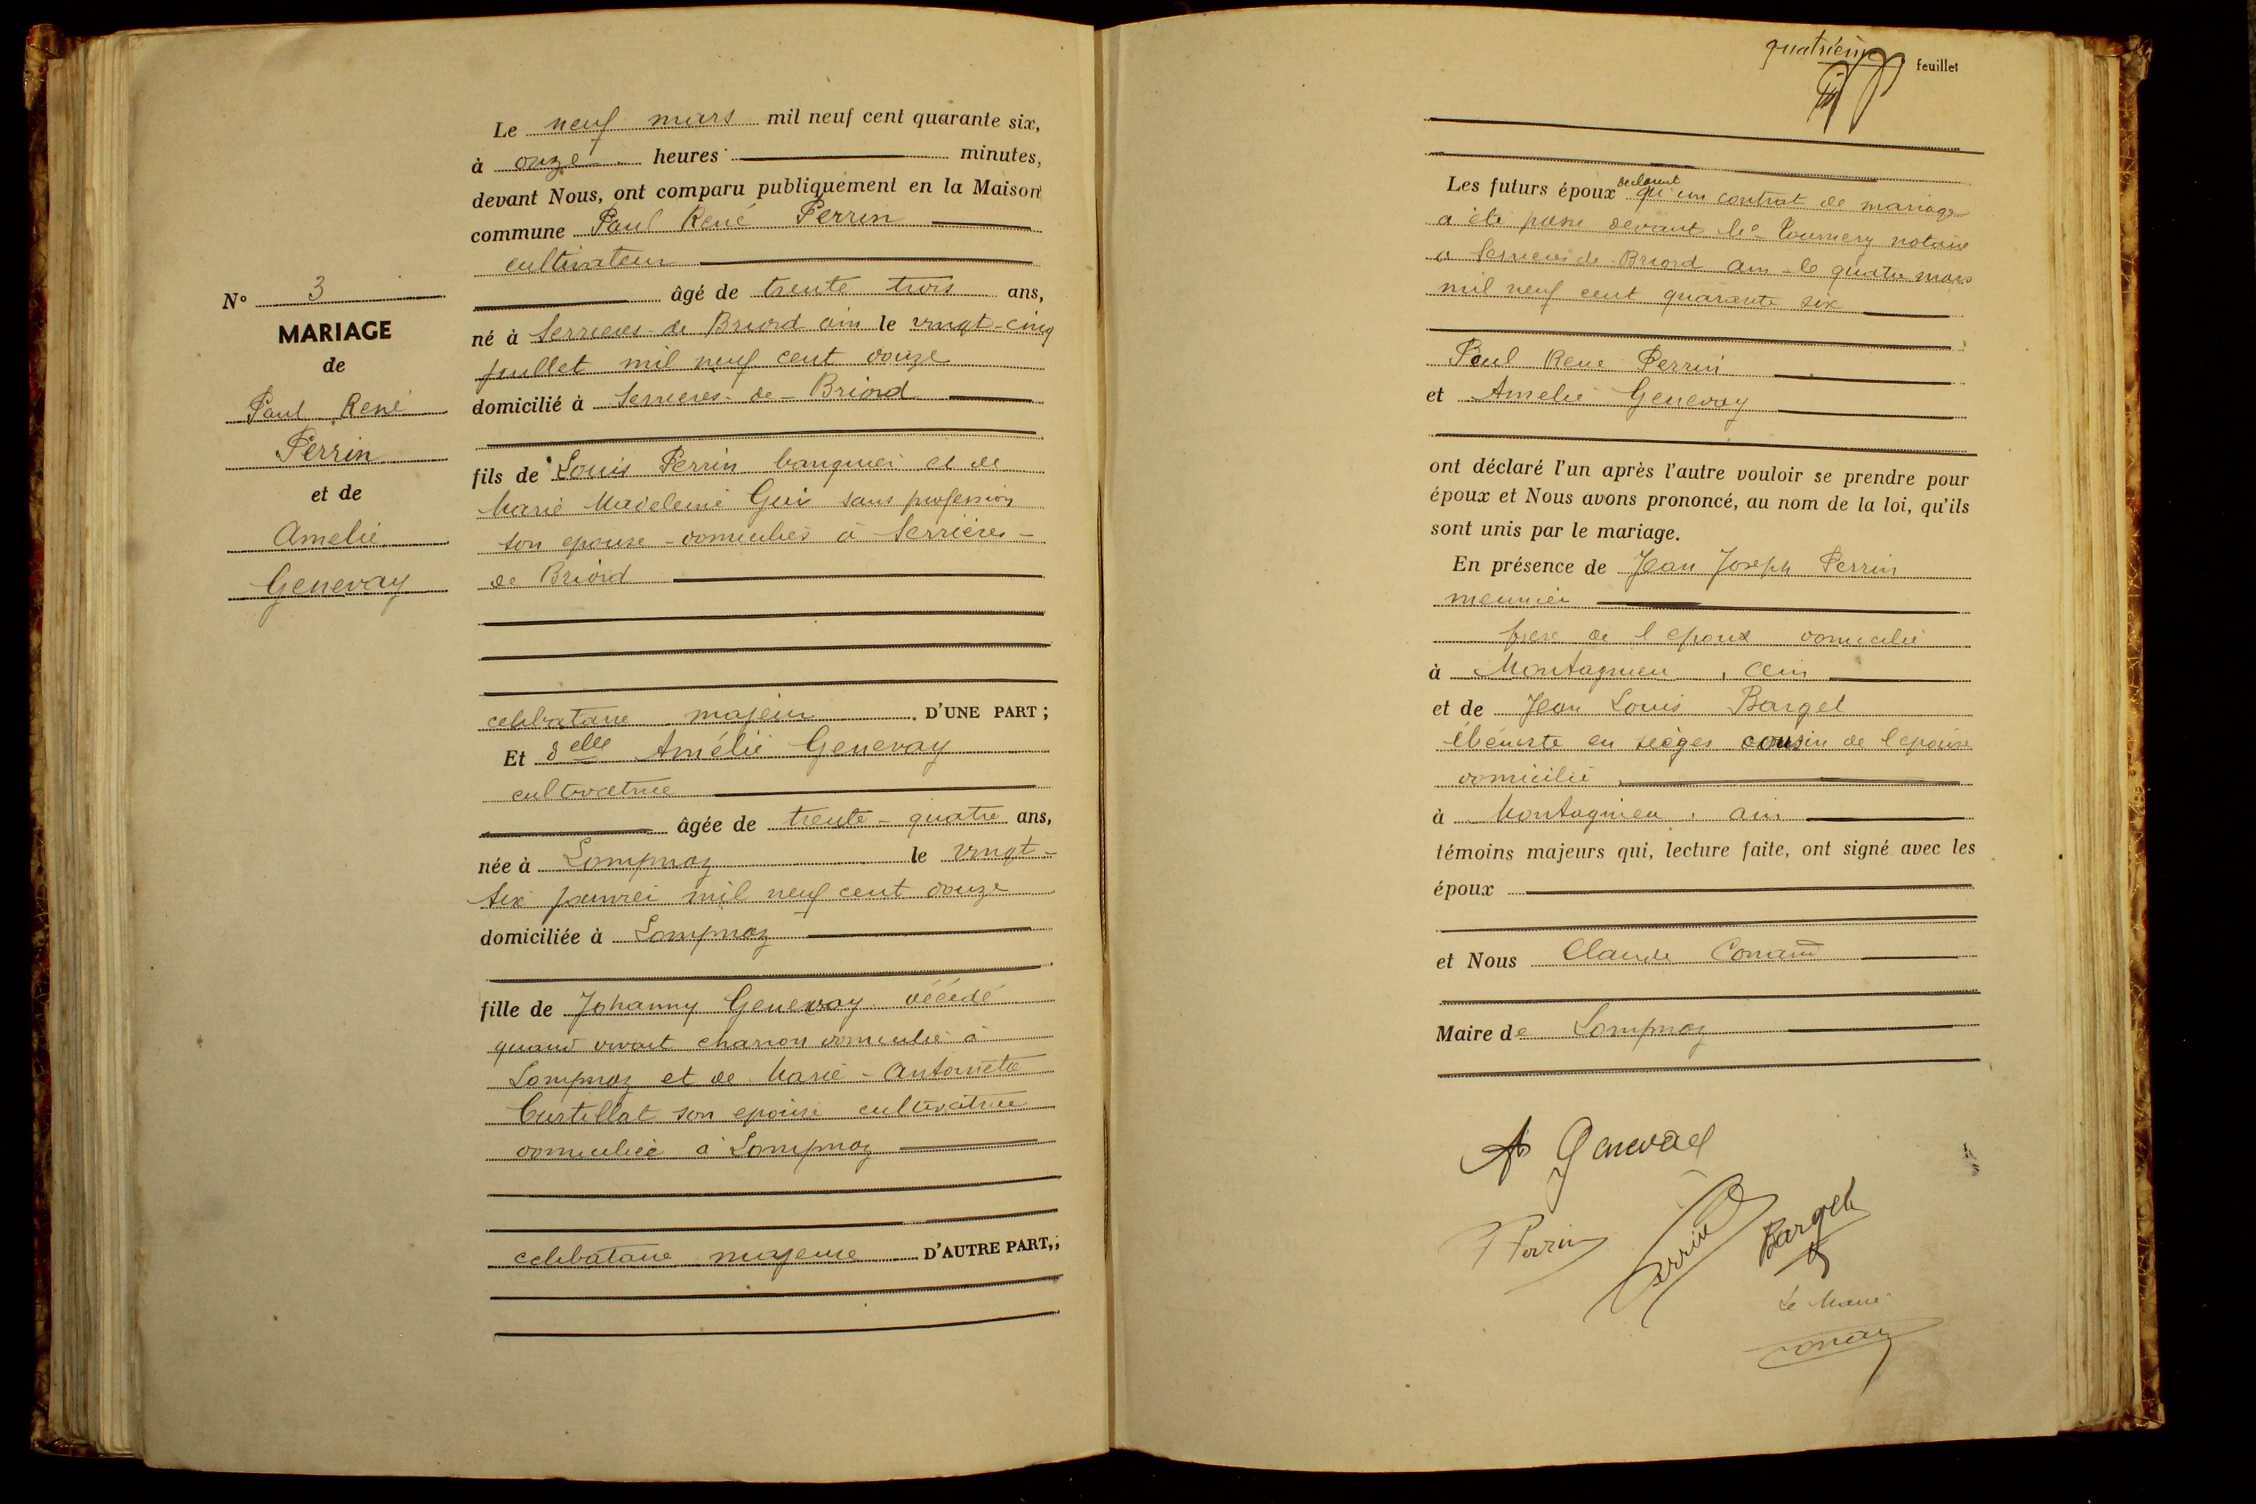 Le neuf mars mil neuf cent quarante six,
à onze heures minutes,
devant Nous, ont comparu publiquement en la Maison
commune Paul René Perrin
cultivateur
âgé de trente trois ans,
né à Serrieres-de Briord ain le vingt-cinq
juillet mil neuf cent douze
domicilié à Serrieres-de-Briord
fils de Louis Perrin banquier et de
Marie Madeleine Gui sans profession
son epouse - domiciliés à Serrières-
de Briord
celibataire majeur D'UNE PART ;
Et delle Amélie Genevay
cultivatrice
âgée de trente-quatre ans,
née à Lompnaz le vingt-
six janvier mil neuf cent douze
domiciliée à Lompnaz
fille de Johanny Genevay décédé
quand vivait charron domicilié à
Lompnaz et de Marie-Antoinette
Curtillat son epouse cultivatrice
domiciliée à Lompnaz
celibataire majeure D'AUTRE PART,;
N° 3
MARIAGE
de
Paul René
Perrin
et de
Amelie
Genevay
quatrième feuillet
Les futurs époux declarent qu'un contrat de mariage
a été passé devant Me Tournery notaire
a Serrieres de-Briord Ain le quatre mars
mil neuf cent quarante six
Paul Rene Perrin
et Amelie Genevay
ont déclaré l'un après l'autre vouloir se prendre pour
époux et Nous avons prononcé, au nom de la loi, qu'ils
sont unis par le mariage.
En présence de Jean Joseph Perrin
meunier
frere de l epoux domicilié
à Montagnieu, Ain
et de Jean Louis Bargel
ébéniste en sièges cousin de l epouse
domicilié
à Montagnieu. ain
témoins majeurs qui, lecture faite, ont signé avec les
époux
et Nous Claude Conand
Maire de Lompnaz
A Genevay
P Perrin
Perrin
Bargel
Le Maire
Conand